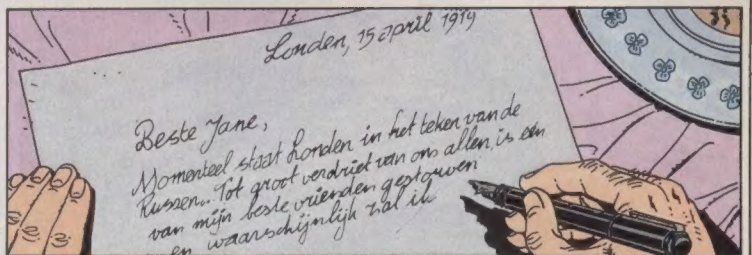 Londen, 15 april 1919
Beste Jane,
Momenteel staat Londen in het teken van de
Russen... Tot groot verdriet van ons allen, is een
van mijn beste vrienden gestorven
en waarschijnlijk zal ik